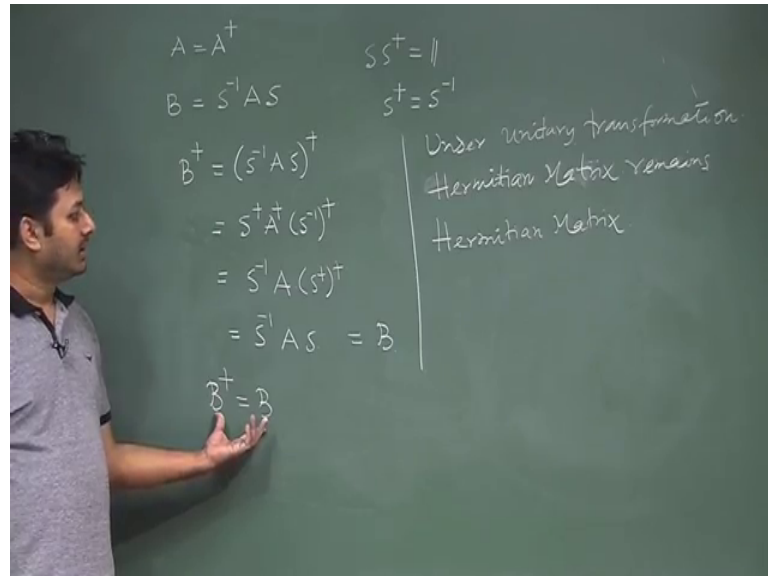 A = A†
B = S⁻¹ A S
B† = (S⁻¹ A S)†
= S† A† (S⁻¹)†
= S⁻¹ A (S†)†
= S⁻¹ A S = B
B† = B
S S† = 𝟙
S† = S⁻¹
Under Unitary transformation
Hermitian Matrix remains
Hermitian Matrix